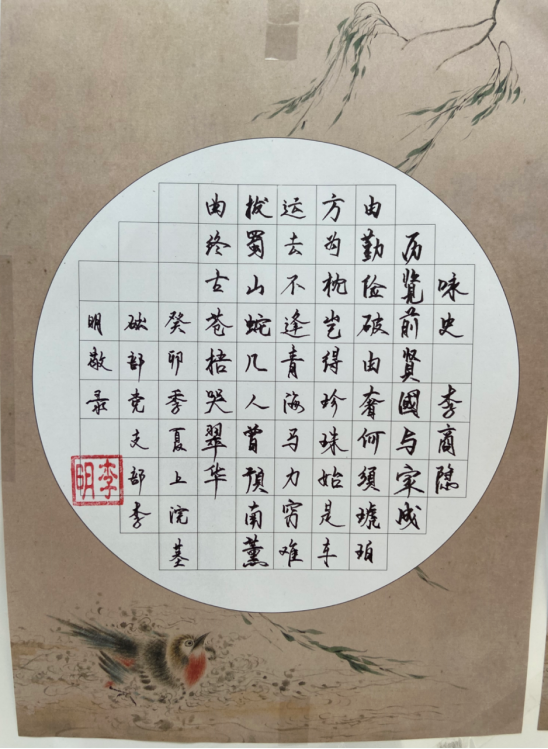 咏史 李商隐
历览前贤國与家成
由勤俭破由奢何须琥珀
方为枕岂得珍珠始是车
运去不逢青海马力穷难
拔蜀山蛇几人曾预南薰
曲终古苍梧哭翠华
癸卯季夏上浣基
础部党支部李
明敬录
李明